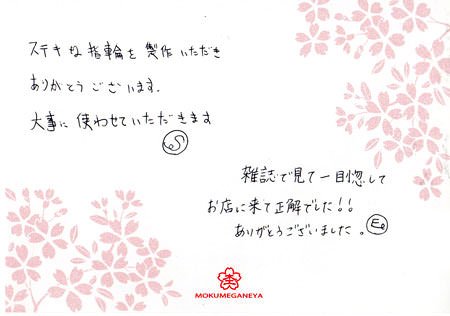 ステキな指輪を製作いただき
ありがとうございます。
大事に使わせていただきます
S
雑誌で見て一目惚して
お店に来て正解でした!!
ありがとうございました。
MOKUMEGANEYA